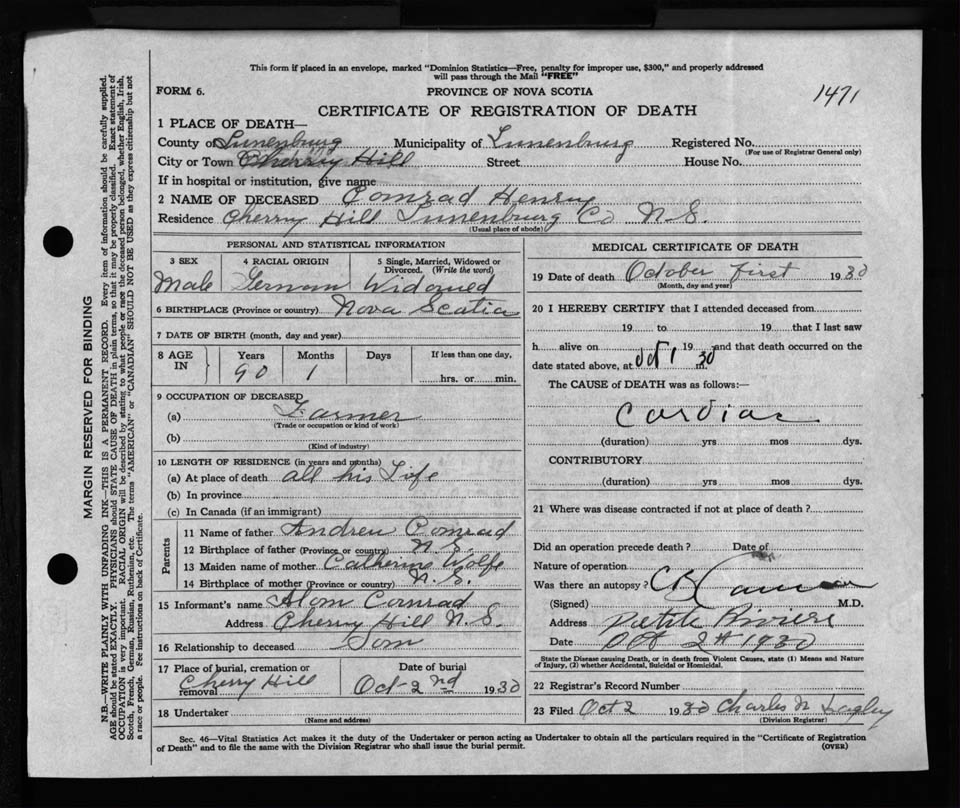 This form if placed in an envelope, marked "Dominion Statistics—Free, penalty for improper use, $300," and properly addressed
will pass through the Mail "FREE"
FORM 6. PROVINCE OF NOVA SCOTIA 1471
CERTIFICATE OF REGISTRATION OF DEATH
1 PLACE OF DEATH—
County of Lunenburg Municipality of Lunenburg Registered No.
(For use of Registrar General only)
City or Town Cherry Hill Street House No.
If in hospital or institution, give name
2 NAME OF DECEASED Comrad Henry
Residence Cherry Hill Lunenburg Co N.S.
(Usual place of abode)
PERSONAL AND STATISTICAL INFORMATION
3 SEX 4 RACIAL ORIGIN 5 Single, Married, Widowed or Divorced. (Write the word)
Male German Widowed
6 BIRTHPLACE (Province or country) Nova Scatia
7 DATE OF BIRTH (month, day and year)
8 AGE IN Years Months Days If less than one day,
90 1 hrs. or min.
9 OCCUPATION OF DECEASED
(a) Farmer
(Trade or occupation or kind of work)
(b)
(Kind of industry)
10 LENGTH OF RESIDENCE (in years and months)
(a) At place of death all his Life
(b) In province
(c) In Canada (if an immigrant)
Parents
11 Name of father Andrew Comrad
12 Birthplace of father (Province or country) N.S.
13 Maiden name of mother Catherine Wolfe
14 Birthplace of mother (Province or country) N.S.
15 Informant's name Comrad
Address Cherry Hill N.S.
16 Relationship to deceased Son
17 Place of burial, cremation or removal Date of burial
Cherry Hill Oct 2nd 1930
18 Undertaker
(Name and address)
MEDICAL CERTIFICATE OF DEATH
19 Date of death October first 1930
(Month, day and year)
20 I HEREBY CERTIFY that I attended deceased from
19 to 19 that I last saw
h alive on 19 and that death occurred on the
date stated above, at Oct 1 30 m.
The CAUSE of DEATH was as follows:—
Cardiac
(duration) yrs mos dys.
CONTRIBUTORY
(duration) yrs mos dys.
21 Where was disease contracted if not at place of death?
Did an operation precede death? Date of
Nature of operation
Was there an autopsy?
(Signed) M.D.
Address Petite Riviere
Date Oct 2nd 1930
State the Disease causing Death, or in death from Violent Causes, state (1) Means and Nature
of Injury, (2) whether Accidental, Suicidal or Homicidal.
22 Registrar's Record Number
23 Filed Oct 2 1930 Charles N
(Division Registrar)
Sec. 46—Vital Statistics Act makes it the duty of the Undertaker or person acting as Undertaker to obtain all the particulars required in the "Certificate of Registration
of Death" and to file the same with the Division Registrar who shall issue the burial permit. (OVER)
MARGIN RESERVED FOR BINDING
N.B.—WRITE PLAINLY WITH UNFADING INK—THIS IS A PERMANENT RECORD. Every item of information should be carefully supplied.
AGE should be stated EXACTLY. PHYSICIANS should STATE CAUSE OF DEATH in plain terms, so that it may be properly classified. Exact statement of
OCCUPATION is very important. RACIAL ORIGIN will be described by stating to what people or race the deceased person belonged, whether English, Irish,
Scotch, French, German, Russian, Ruthenian, etc. The terms "AMERICAN" or "CANADIAN" SHOULD NOT BE USED as they express citizenship but not
a race or people. See instructions on back of Certificate.